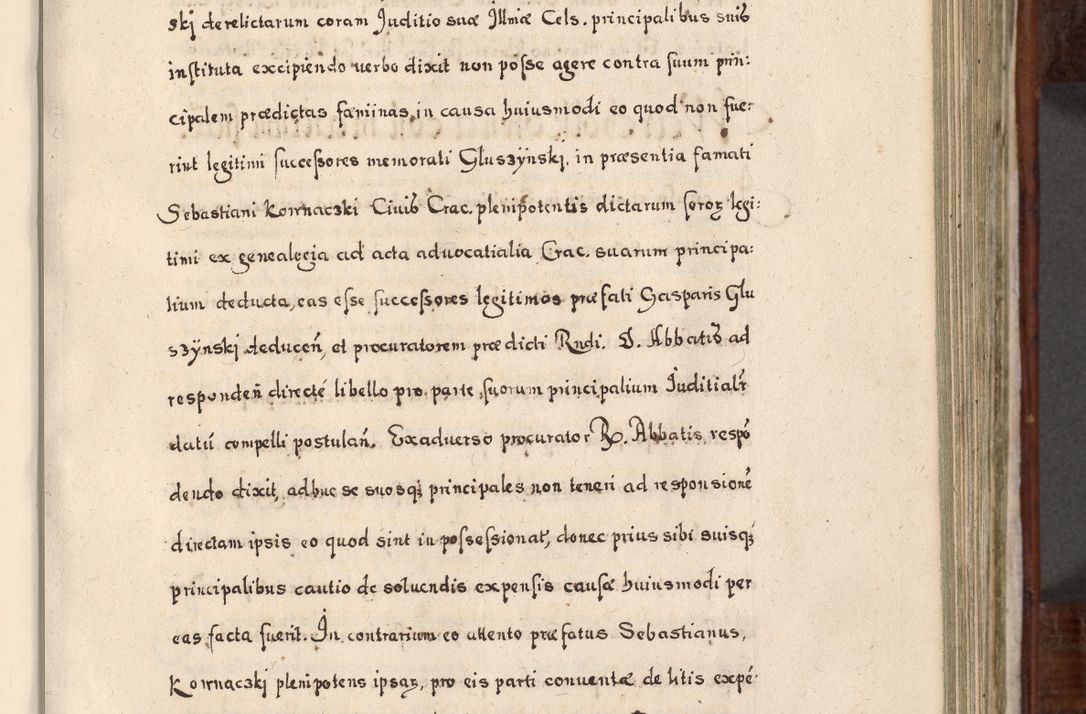 ski derelictarum coram Juditio suæ Illmæ Cels. principalibus suis
instituta excipiendo verbo dixit non posse agere contra suum prin:
cipalem prædictas faminas, in causa huiusmodi eo quod non fue:
rint legitimi successores memorati Gluszÿnski, in præsentia famati
Sebastiani Kornaczki Civis Crac. plenipotentis dictarum soroꝝ legi:
timi ex genealogia ad acta advocatialia Crac. suarum principa:
lium deducta, eas esse successores legitimos præfati Gasparis Glu
szÿnski deduceñ, et procuratorem prædicti Rndi. D. Abbatis ad
respondeñ directé libello pro parte suorum principalium Juditialr
datū compelli postulañ. Exadverso procurator R. Abbatis respō
dendo dixit, adhuc se suosqꝫ principales non teneri ad responsionē
directam ipsis eo quod sint in possessionat, donec prius sibi suisqꝫ
principalibus cautio de solvendis expensis causæ huiusmodi per
eas facta fuerit. In contrarium eo attento præfatus Sebastianus,
Kornaczki plenipotens ipsaꝝ, pro eis parti conventæ de litis expē